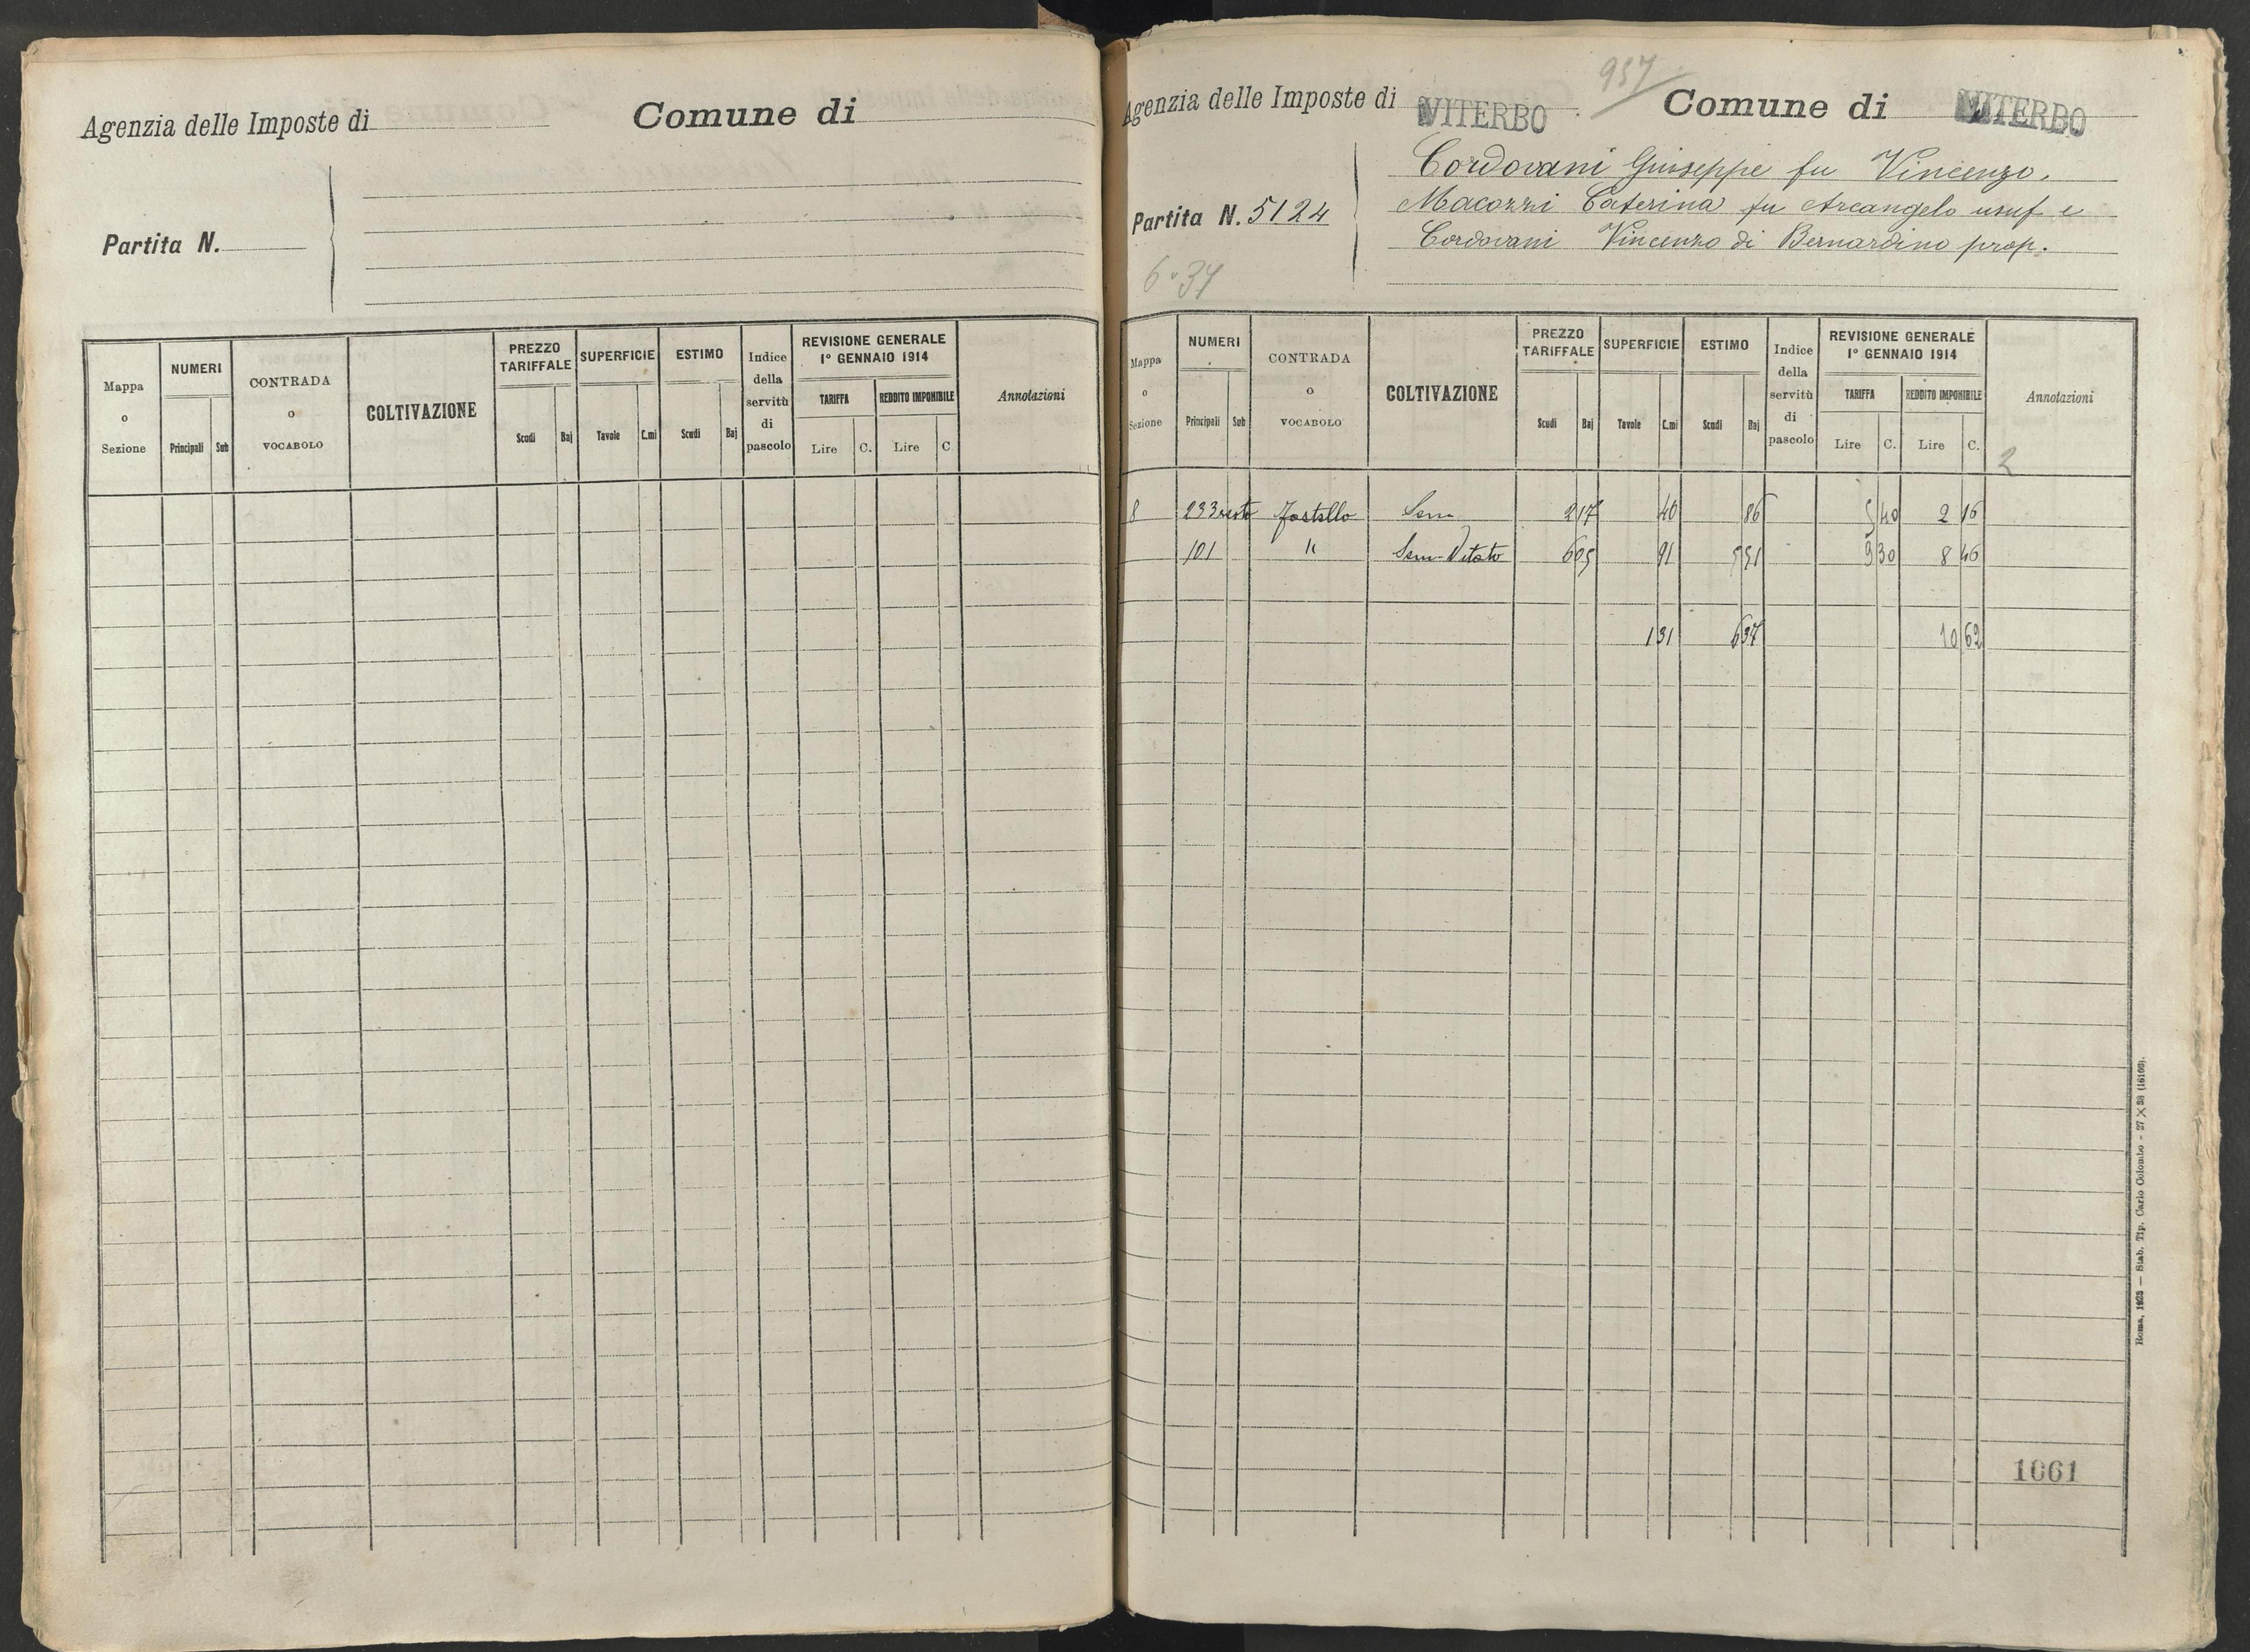 Agenzia delle Imposte di Comune di
Partita N.
Mappa o Sezione NUMERI Principali Sub CONTRADA o VOCABOLO COLTIVAZIONE PREZZO TARIFFALE Scudi Baj SUPERFICIE Tavole C.mi ESTIMO Scudi Baj Indice della servitù di pascolo REVISIONE GENERALE 1º GENNAIO 1914 TARIFFA Lire C. REDDITO IMPONIBILE Lire C Annotazioni
957
Agenzia delle Imposte di VITERBO Comune di VITERBO
Partita N. 5124
Cordovani Giuseppe fu Vincenzo.
Macozzi Caterina fu Arcangelo usuf e
Cordovani Vincenzo di Bernardino prop.
Mappa o Sezione NUMERI Principali Sub CONTRADA o VOCABOLO COLTIVAZIONE PREZZO TARIFFALE Scudi Baj SUPERFICIE Tavole C.mi ESTIMO Scudi Baj Indice della servitù di pascolo REVISIONE GENERALE 1º GENNAIO 1914 TARIFFA Lire C. REDDITO IMPONIBILE Lire C. Annotazioni
2
8 233 resto Sem 2 17 40 86 5 40 2 16
101 " Sem-Vitato 6 05 91 5 51 9 30 8 46
1 31 6 37 10 62
1061
Roma, 1923 — Stab. Tip. Carlo Colombo - 27 X 38 (16166).